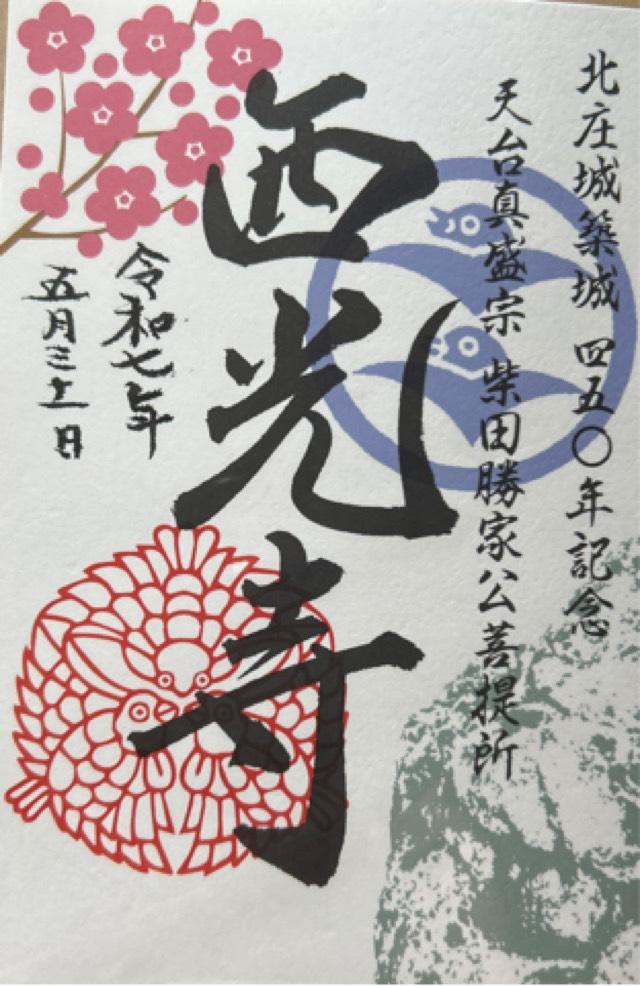 北庄城築城 四五〇年記念
天台真盛宗 柴田勝家公菩提所
西光寺
令和七年
五月三十一日